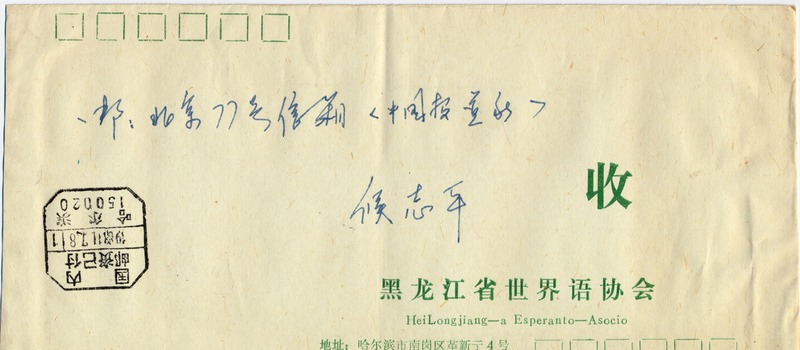 邮：北京77号信箱《中国报道社》
侯志平
收
国内
邮资已付
哈尔滨
150020
黑龙江省世界语协会
HeiLongjiang—a Esperanto—Asocio
地址：哈尔滨市南岗区革新亍4号